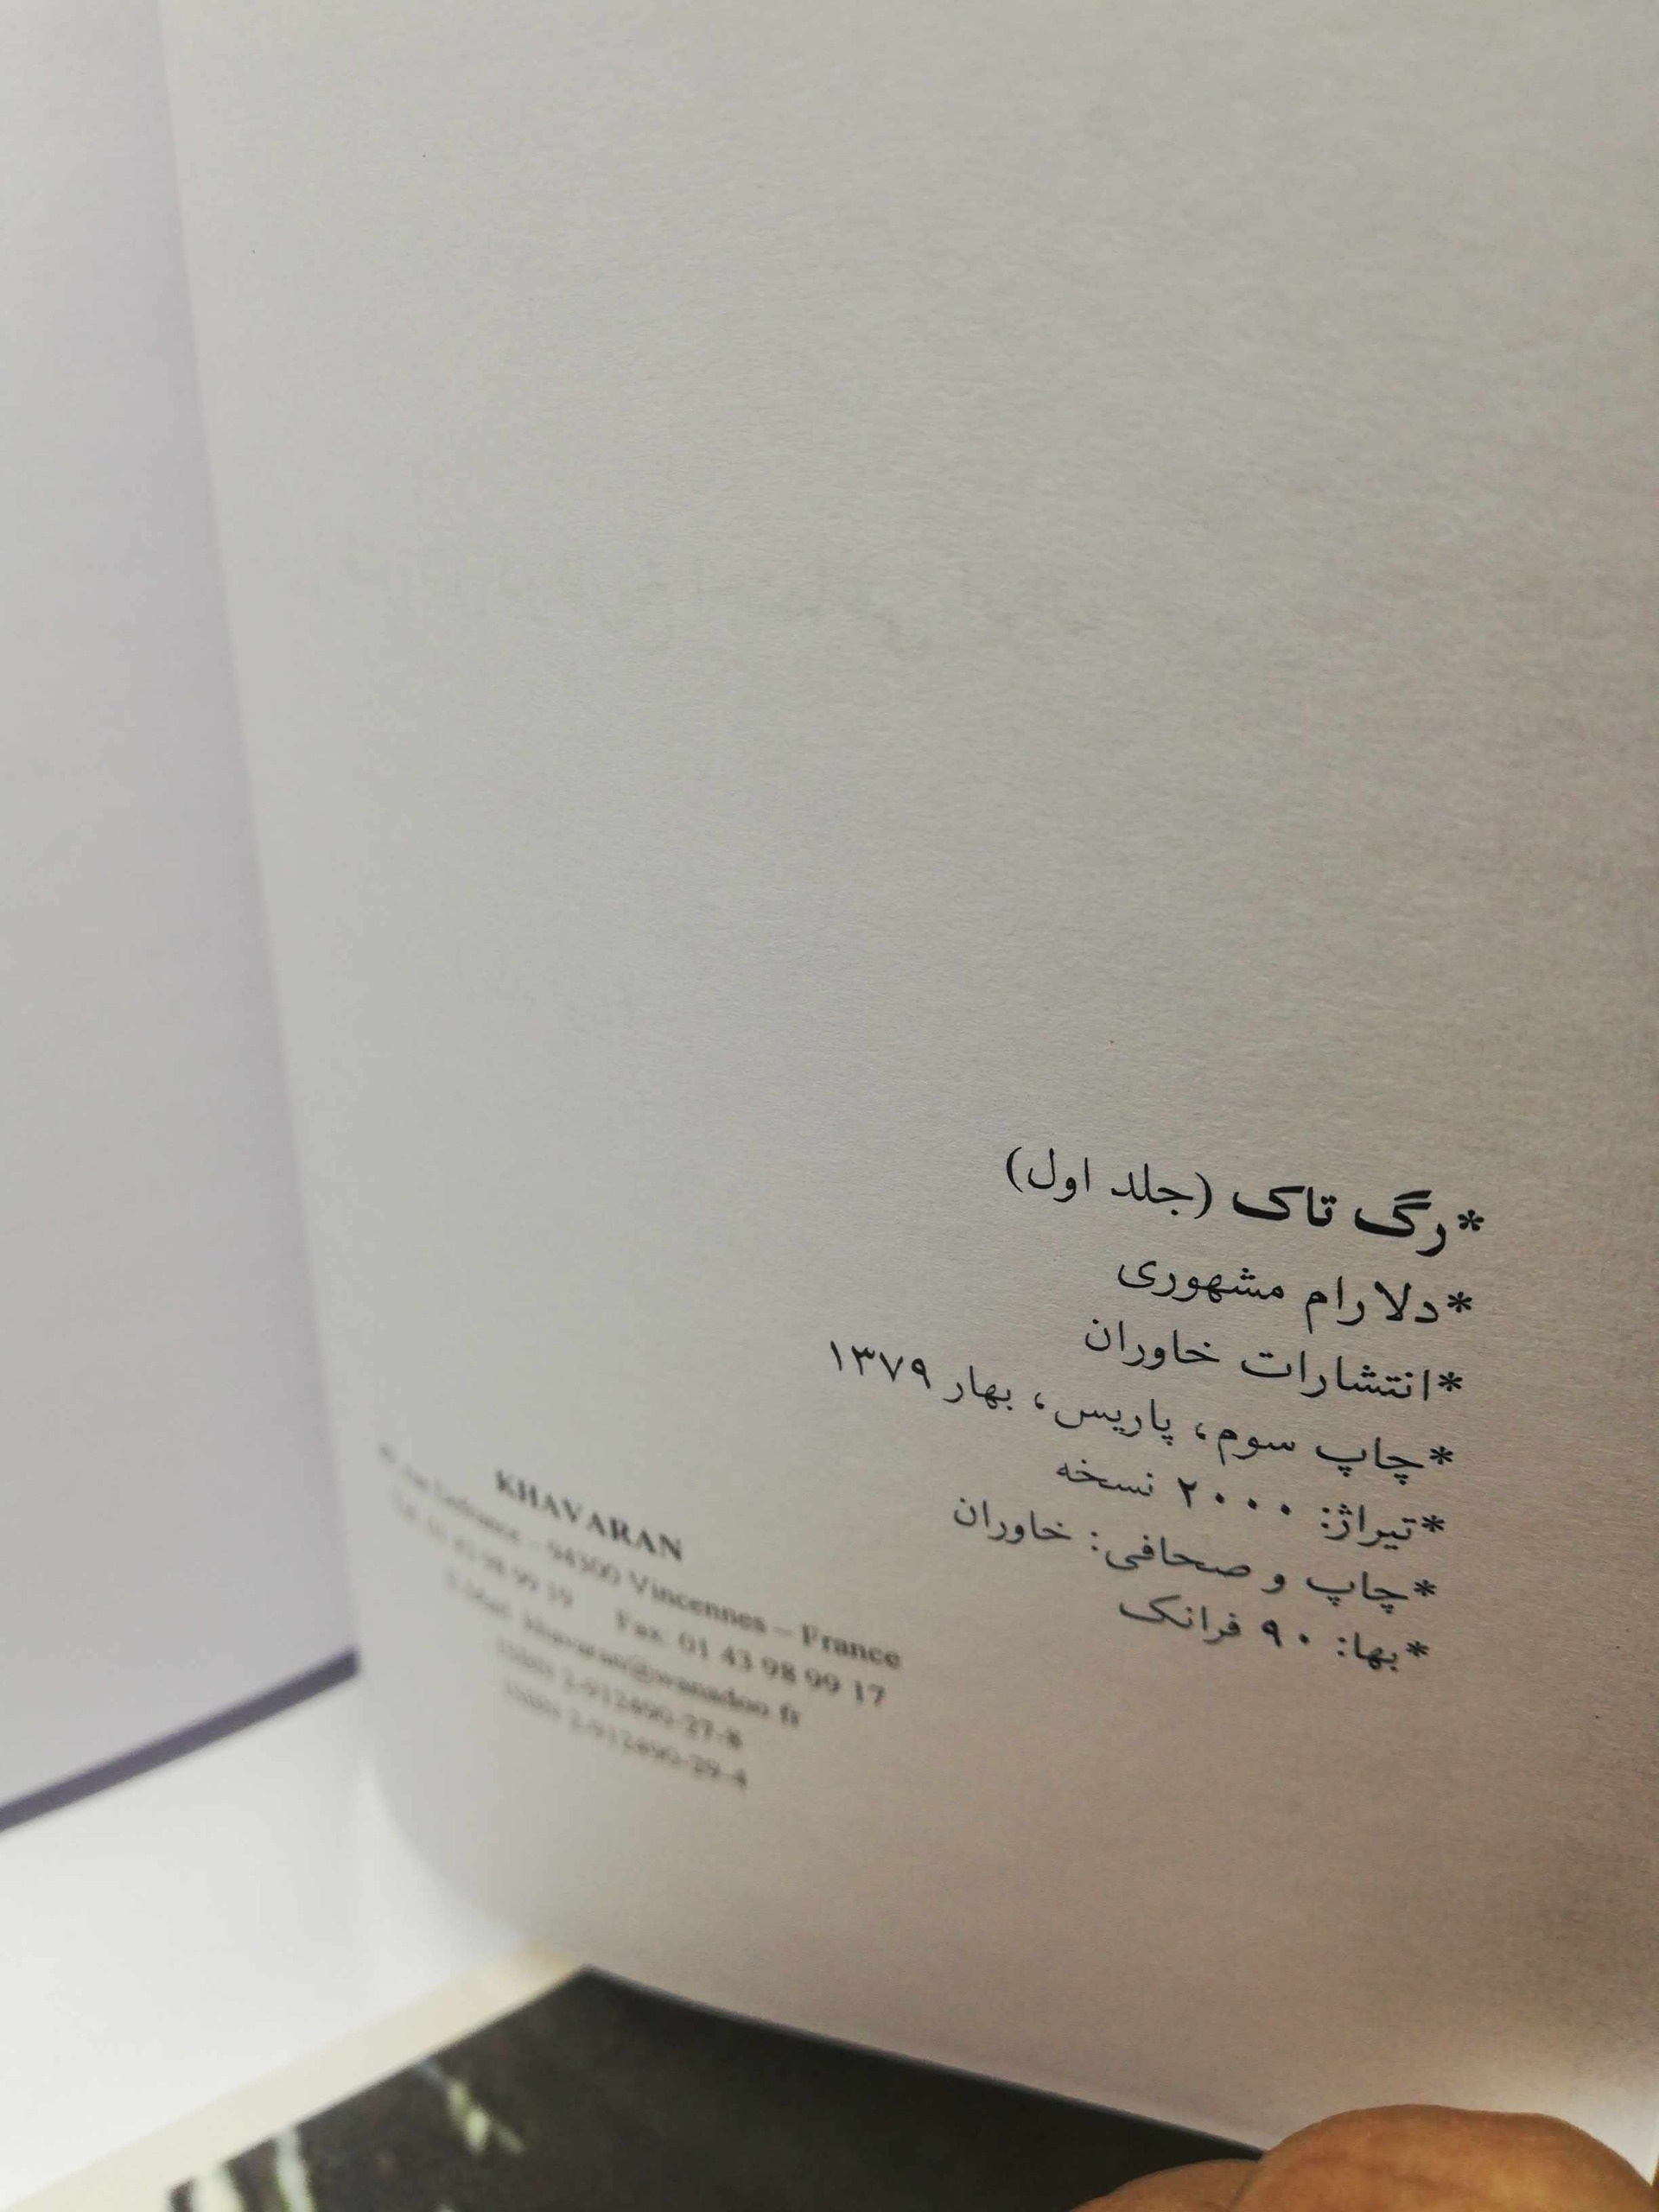 *رگ تاک (جلد اول)
*دلارام مشهوری
*انتشارات خاوران
*چاپ سوم، پاریس، بهار ۱۳۷۹
*تیراژ: ۲۰۰۰ نسخه
*چاپ و صحافی: خاوران
*بها: ۹۰ فرانک
KHAVARAN
94300 Vincennes – France
98 99 19 Fax. 01 43 98 99 17
khavaran@wanadoo.fr
2-912490-27-8
2-912490-29-4